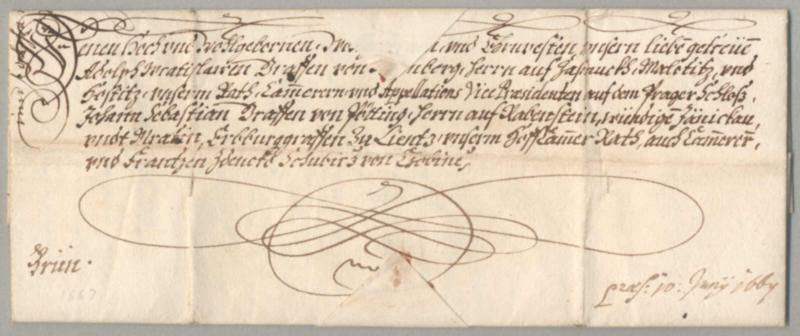 Denen Hoch und Wohlgebornen, und Ehrnvesten, unsern liebē getreüē
Adolph Wratislawen Graffen von nberg, Herrn auf Jasmuckh, Malotitz, und
Hostitz, unserm Rath, Cam̄erern und Appellations Vice Præsidenten auf dem Prager Schloß,
Johann Sebastian Graffen von Pötting, Herrn auf Rabenstein,
undt Erbburggraffen zu Lientz, unserm Hoff Cam̄er Rath, auch Cam̄erer,
und Frantzen von
Brün.
præs: 10: Junÿ 1667
1667